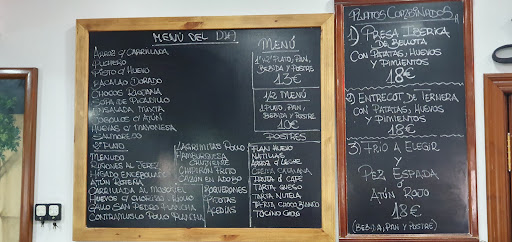 MENÚ DEL DIA
ARROZ C/ CARRILLADA
PUCHERO
PISTO C/ HUEVO
BACALAO DORADO
CHOCOS RIOJANA
SOPA DE PICADILLO
ENSALADA MIXTA
COGOLLOS C/ ATÚN
HUEVAS C/ MAYONESA
SALMOREJO
2º PLATO
MENUDO
RIÑONES AL JEREZ
HIGADO ENCEBOLLADO
ATÚN
CARRILLADA AL
HUEVOS C/ CHORIZO
GALLO SAN PEDRO PLANCHA
CONTRAMUSLO POLLO PLANCHA
LAGRIMITAS POLLO
HAMBURGUESA
CHIPIRÓN FRITO
CAZÓN EN ADOBO
BOQUERONES
PIJOTAS
ACEDIAS
MENÚ
1º Y 2º PLATO, PAN,
BEBIDA Y POSTRE
13€
1/2 MENÚ
1 PLATO, PAN,
BEBIDA Y POSTRE
10€
POSTRES
FLAN HUEVO
NATILLAS
ARROZ C/ LECHE
CREMA CATALANA
TARTA QUESO
TARTA NUTELA
TARTA CHOCO BLANCO
TOCINO CIELO
PLATOS COMBINADOS
1) PRESA IBERICA
DE BELLOTA
CON PATATAS, HUEVOS
Y PIMIENTOS
18€
2) ENTRECOT DE TERNERA
CON PATATAS, HUEVOS
Y PIMIENTOS
18€
3) FRIO A ELEGIR
Y
PEZ ESPADA
O
ATÚN ROJO
18€
(BEBIDA, PAN Y POSTRE)